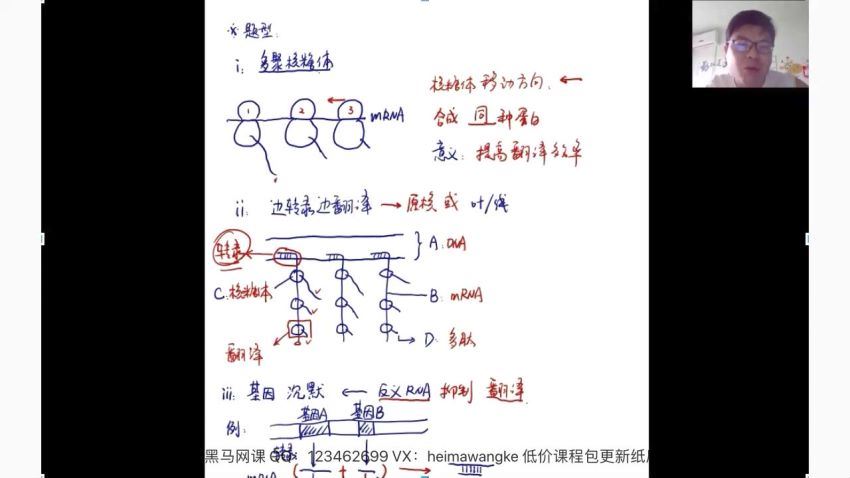 ※题型:
i: 多聚核糖体
核糖体移动方向. ←
1 2 3 mRNA
合成 同 种蛋白
意义: 提高翻译效率
ii: 边转录边翻译 → 原核 或 叶/线
转录
A: DNA
C: 核糖体
B: mRNA
D: 多肽
翻译
iii: 基因沉默 ← 反义RNA 抑制 翻译
基因A 基因B
例:
转录
黑马网课 QQ: 123462699 VX: heimawangke 低价课程包更新纸质
mRNA ( + ) →